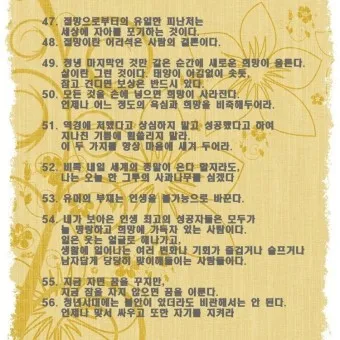 47. 절망으로부터의 유일한 피난처는
세상에 자아를 포기하는 것이다.
48. 절망이란 어리석은 사람의 결론이다.
49. 정녕 마지막인 것만 같은 순간에 새로운 희망이 움튼다.
삶이란 그런 것이다. 태양이 어김없이 솟듯,
참고 견디면 보상은 반드시 있다.
50. 모든 것을 손에 넣으면 희망이 사라진다.
언제나 어느 정도의 욕심과 희망을 비축해두어라.
51. 역경에 처했다고 상심하지 말고 성공했다고 하여
지나친 기쁨에 휩쓸리지 말라.
이 두 가지를 항상 마음에 새겨 두어라.
52. 비록 내일 세계의 종말이 온다 할지라도,
나는 오늘 한 그루의 사과나무를 심겠다
53. 유머의 부재는 인생을 불가능으로 바꾼다.
54. 내가 보아온 인생 최고의 성공자들은 모두가
늘 명랑하고 희망에 가득차 있는 사람이다.
일은 웃는 얼굴로 해나가고,
생활에 일어나는 여러 변화나 기회가 즐겁거나 슬프거나
남자답게 당당히 맞이해들이는 사람들이다.
55. 지금 자면 꿈을 꾸지만,
지금 잠을 자지 않으면 꿈을 이룬다.
56. 청년시대에는 불안이 있더라도 비관해서는 안 된다.
언제나 맞서 싸우고 또한 자기를 지켜라